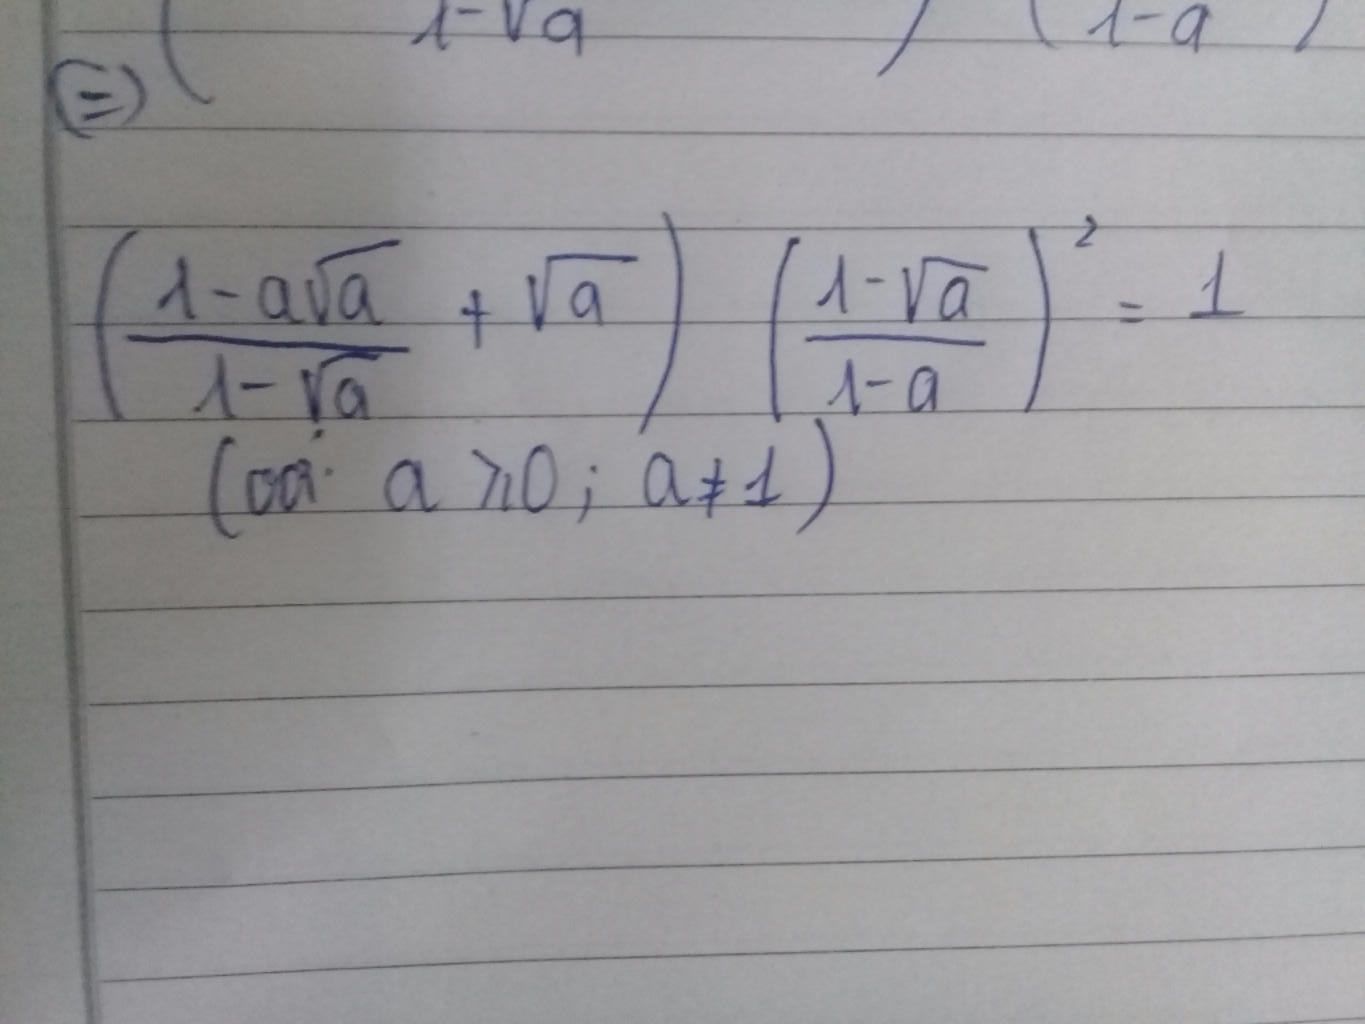 1-√a ) ( 1-a )
(=)
( (1-a√a)/(1-√a) + √a ) ( (1-√a)/(1-a) )² = 1
a ≥ 0 ; a ≠ 1 )